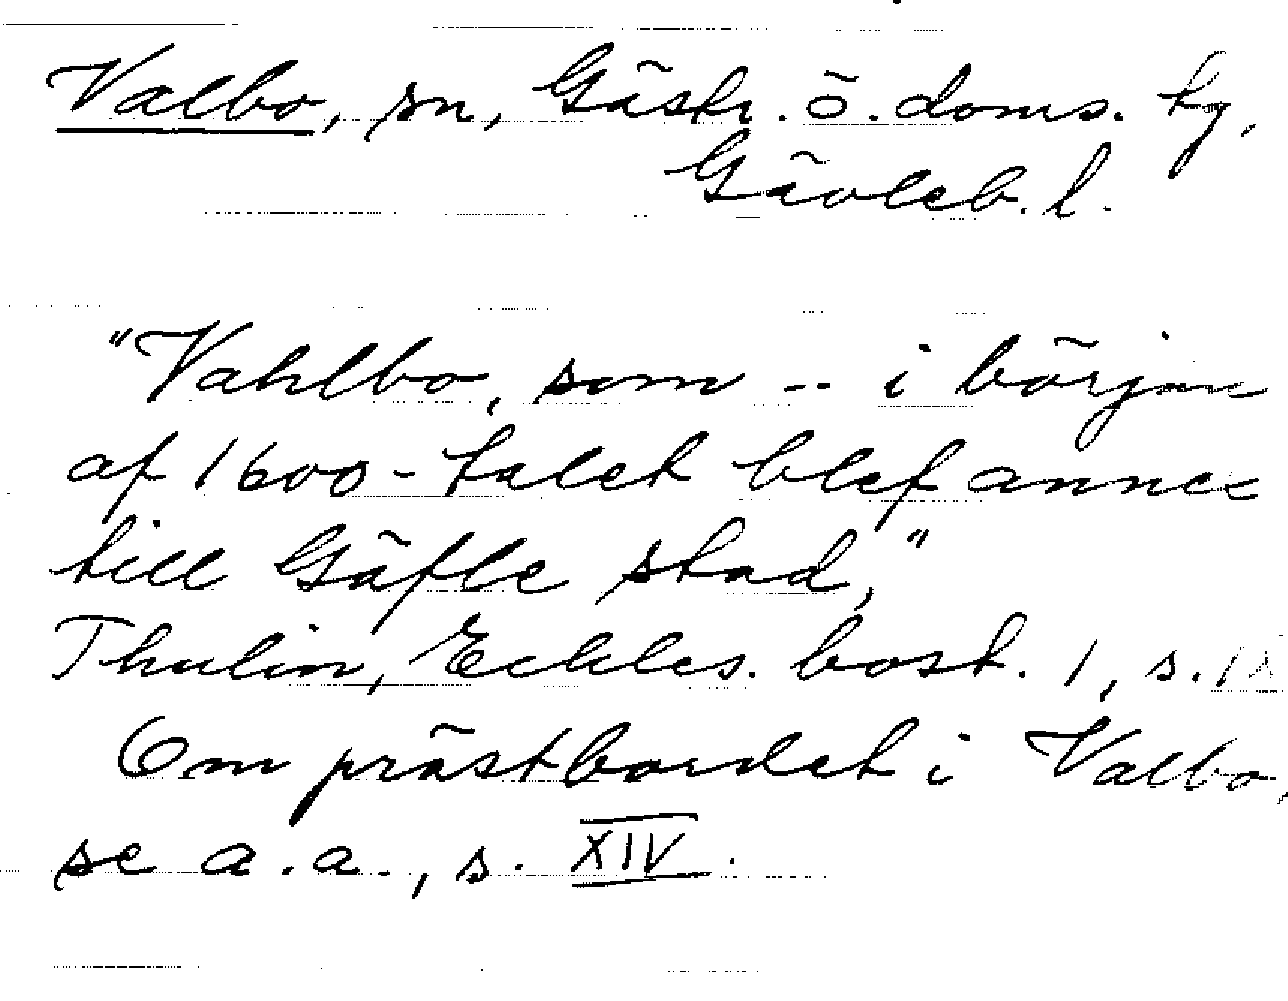 Valbo, sn, Gästr. ö. doms. tg,
Gävleb. l.
"Vahlbo, som -- i början
af 1600-talet blef annex
till Gäfle stad,"
Thulin, Eckles. bost. 1, s.
Om prästbordet i Valbo,
se a.a., s. XIV.